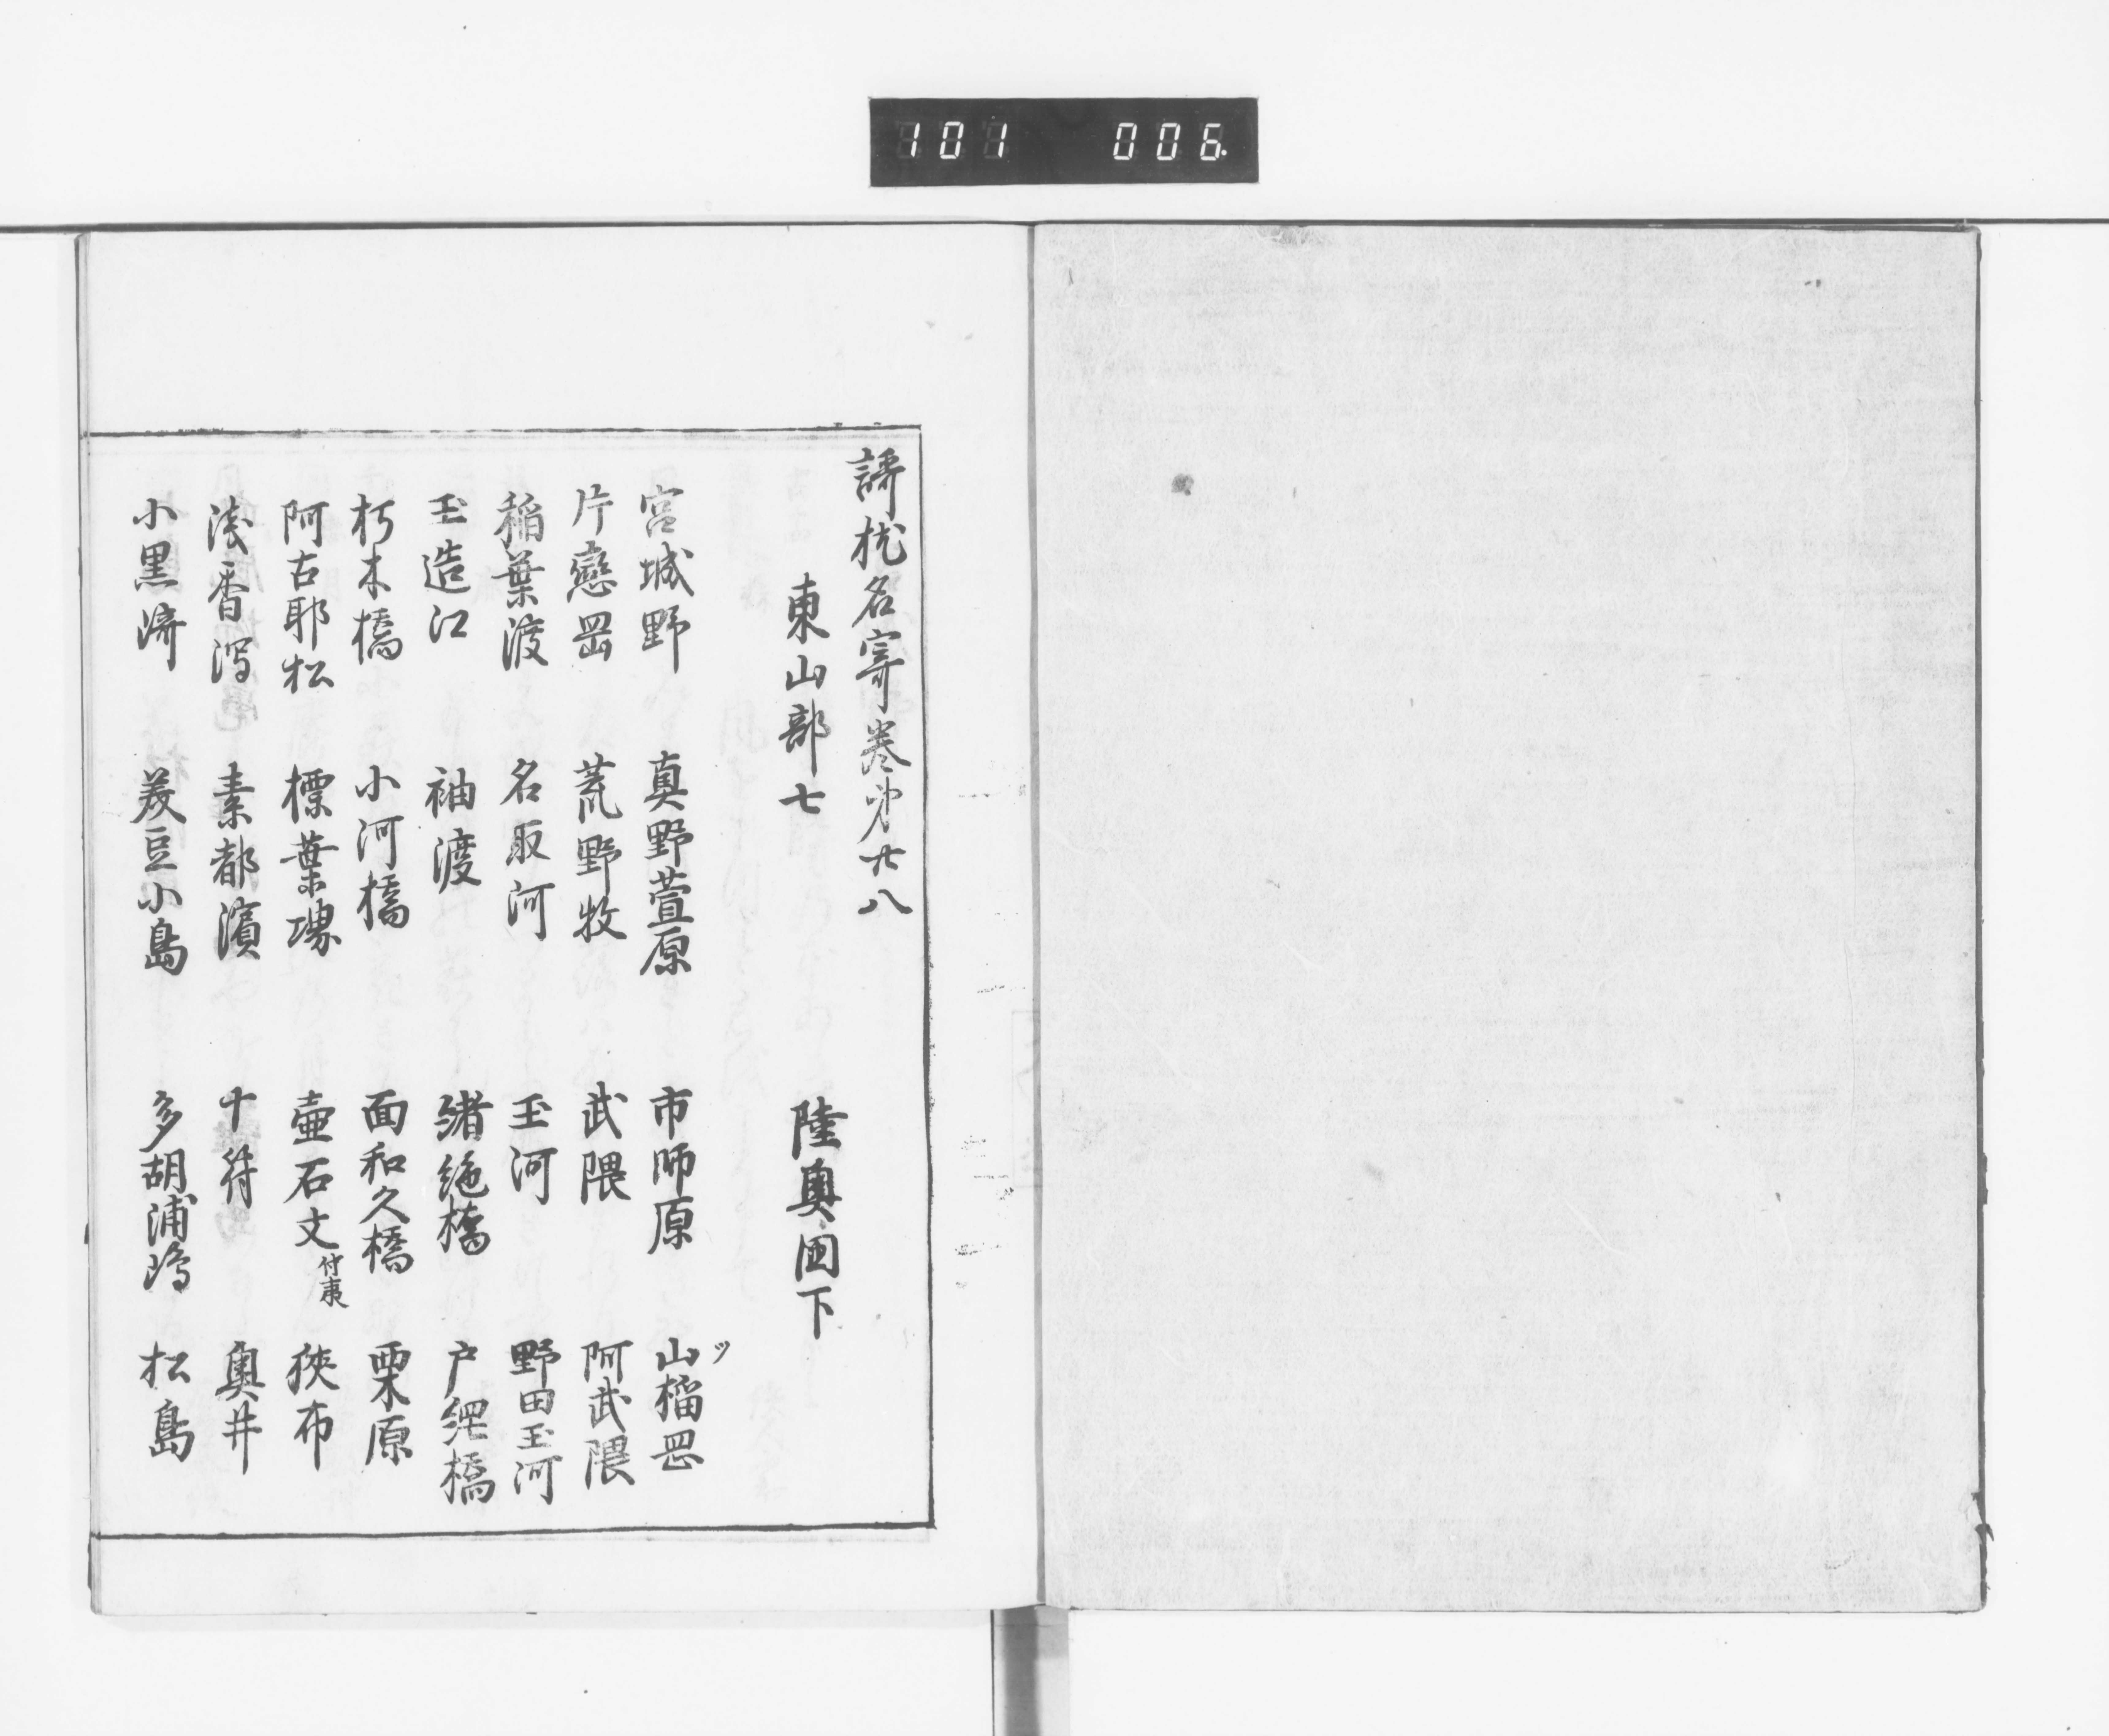 101 006
謌枕名寄巻第廿八
東山部七 陸奥国下
宮城野 真野萱原 市師原 山榴罡
片戀罡 荒野牧 武隈 阿武隈
稲葉渡 名取河 玉河 野田玉河
玉造江 袖渡 緒絶橋 戸絶橋
朽木橋 小河橋 面和久橋 栗原
阿古耶松 標葉堺 壷石文付夷 狭布
浅香沼 素都濱 十符 奥井
小黒濟 美豆小島 多胡浦嶋 松島
ツ